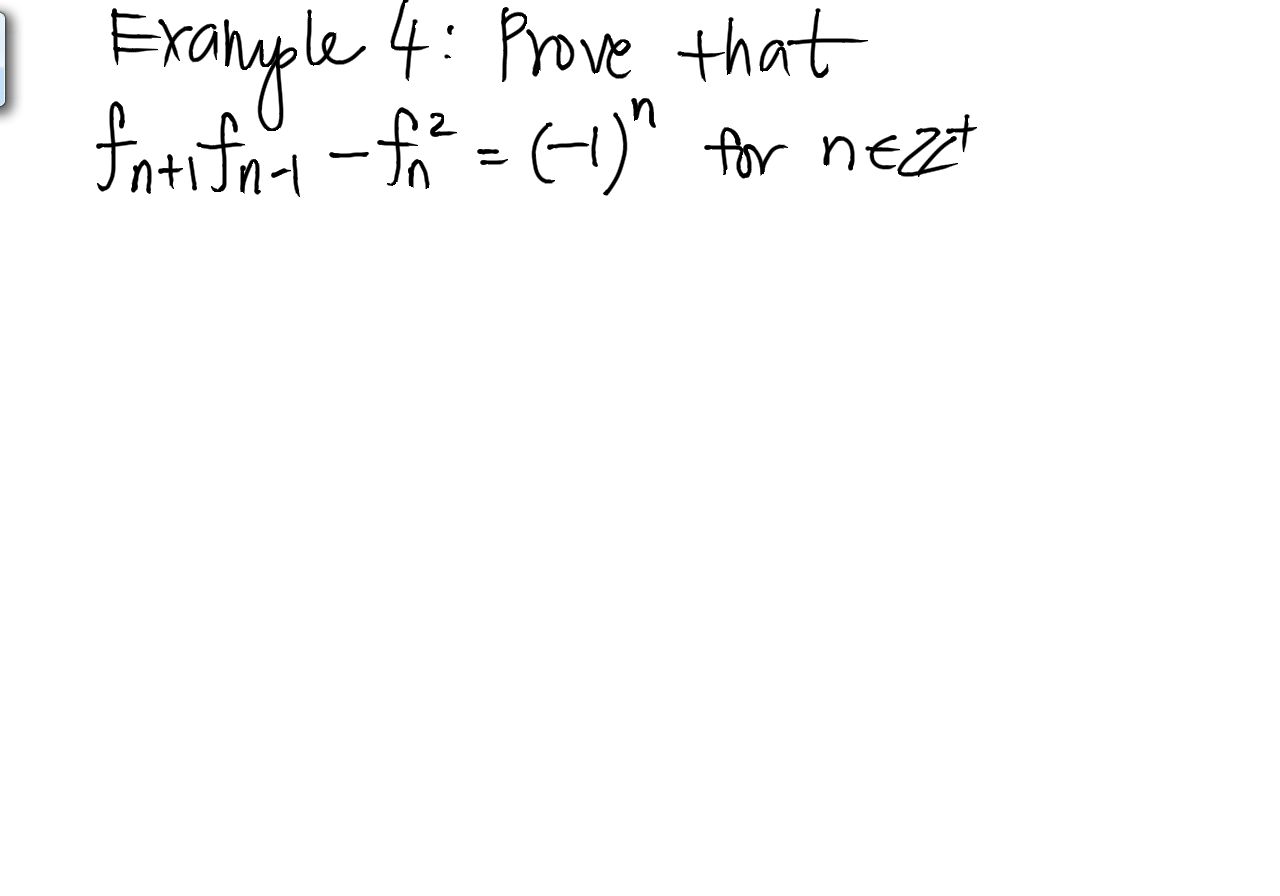 Example 4: Prove that
fₙ₊₁fₙ₋₁ - fₙ² = (-1)ⁿ for n∈ℤ⁺